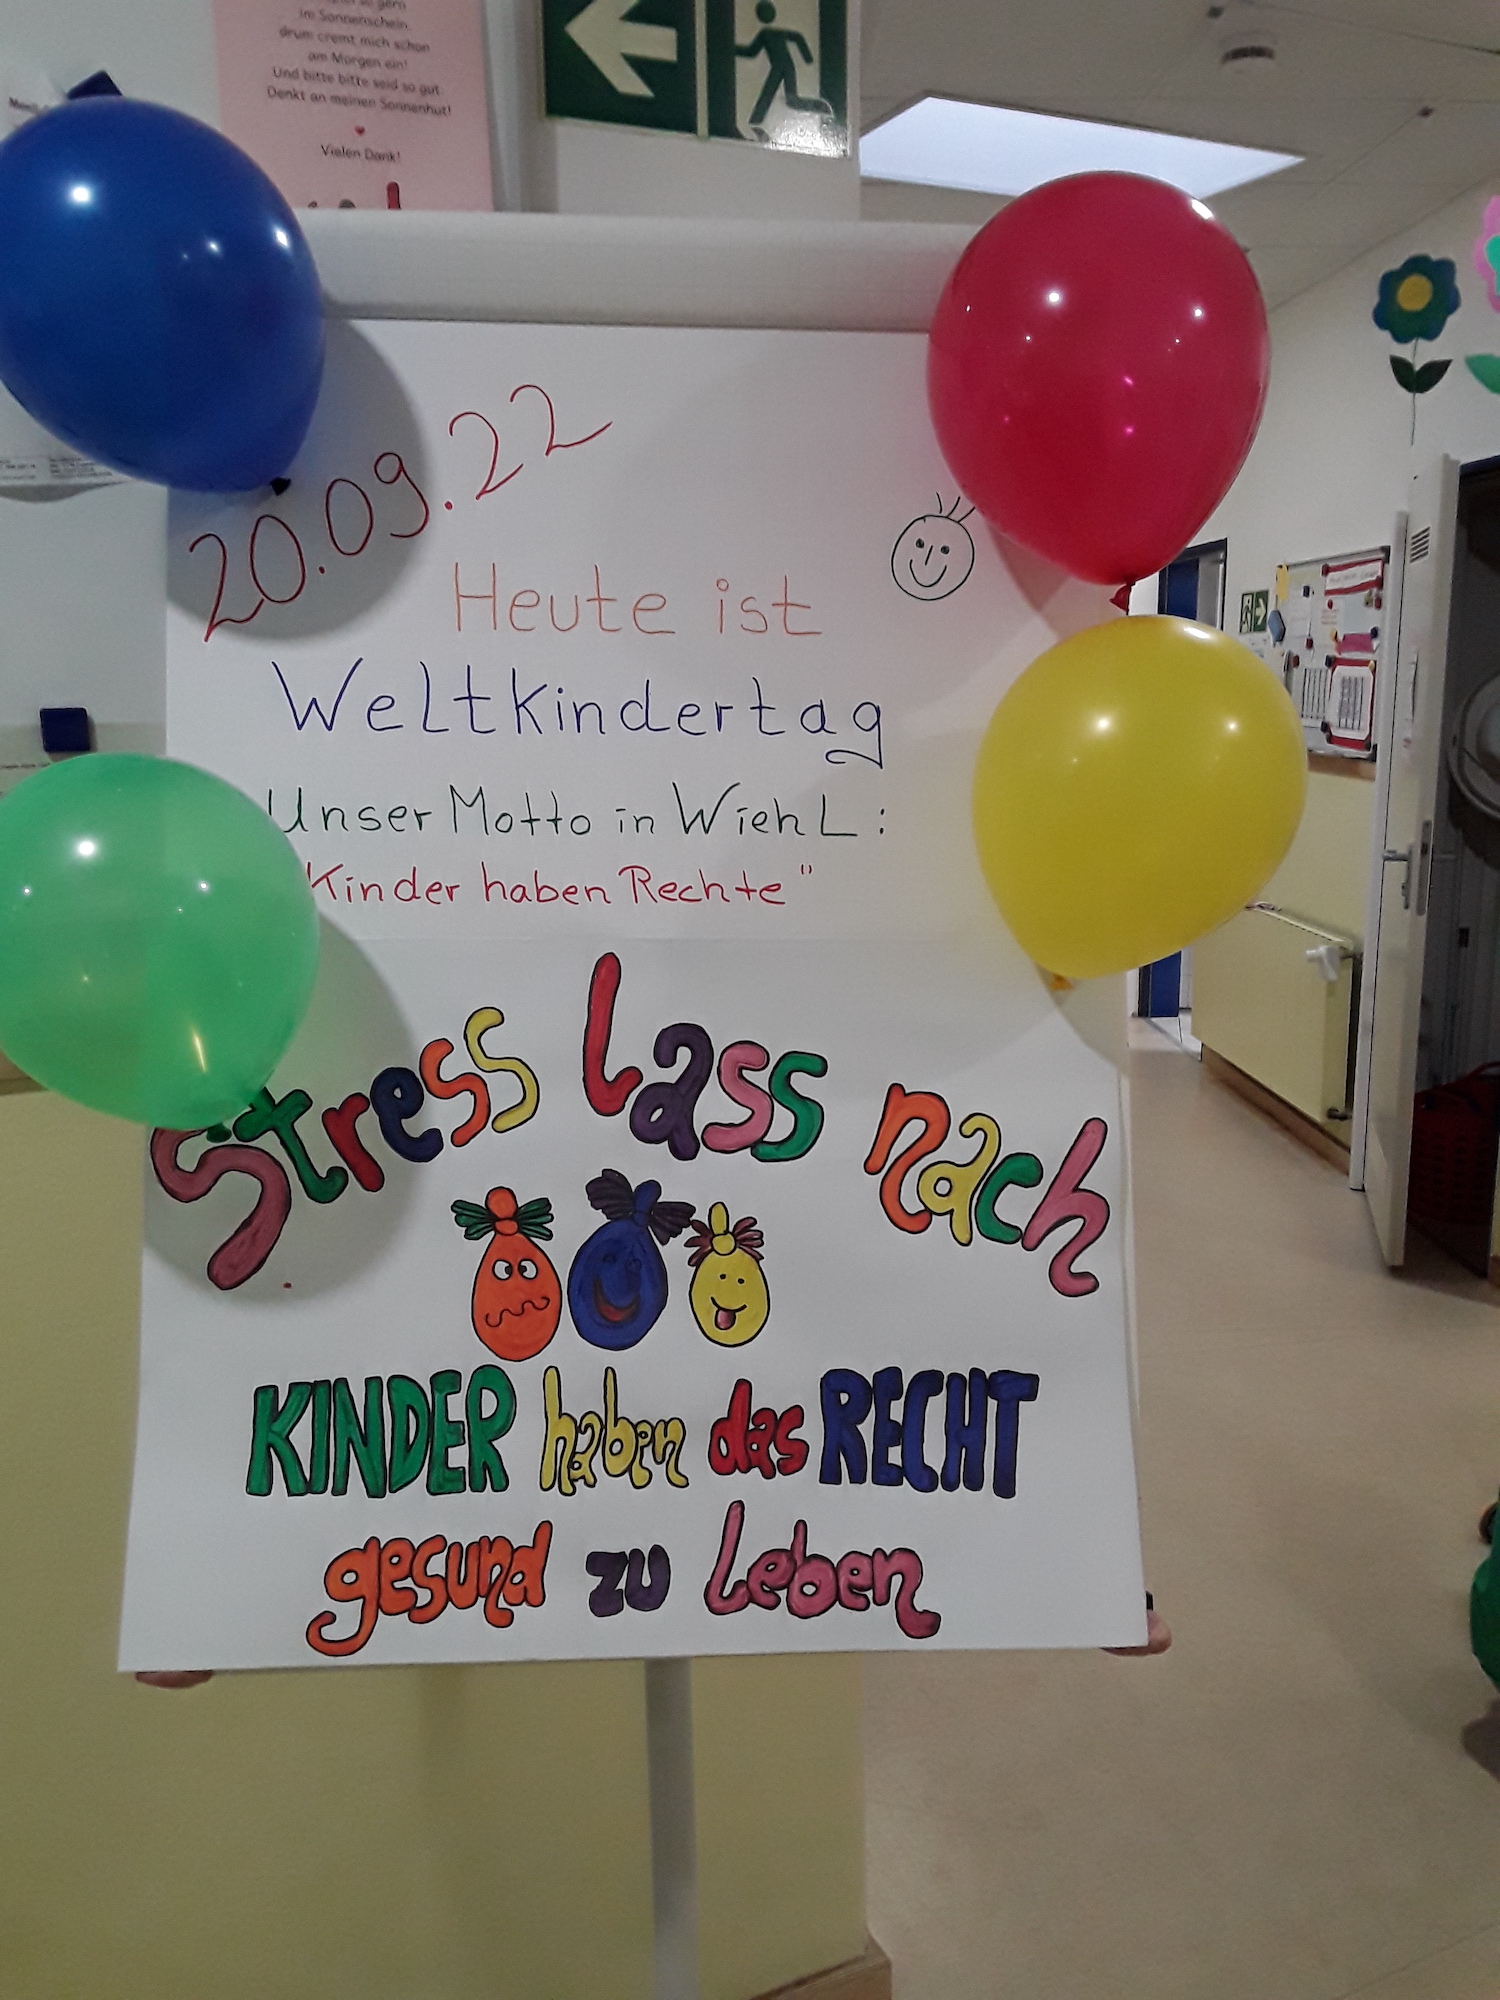 im Sonnenschein,
drum cremt mich schon
am Morgen ein!
Und bitte bitte seid so gut:
Denkt an meinen Sonnenhut!
Vielen Dank!
20.09.22
Heute ist
Weltkindertag
Unser Motto in Wiehl:
Kinder haben Rechte"
Stress lass nach
KINDER haben das RECHT
gesund zu leben